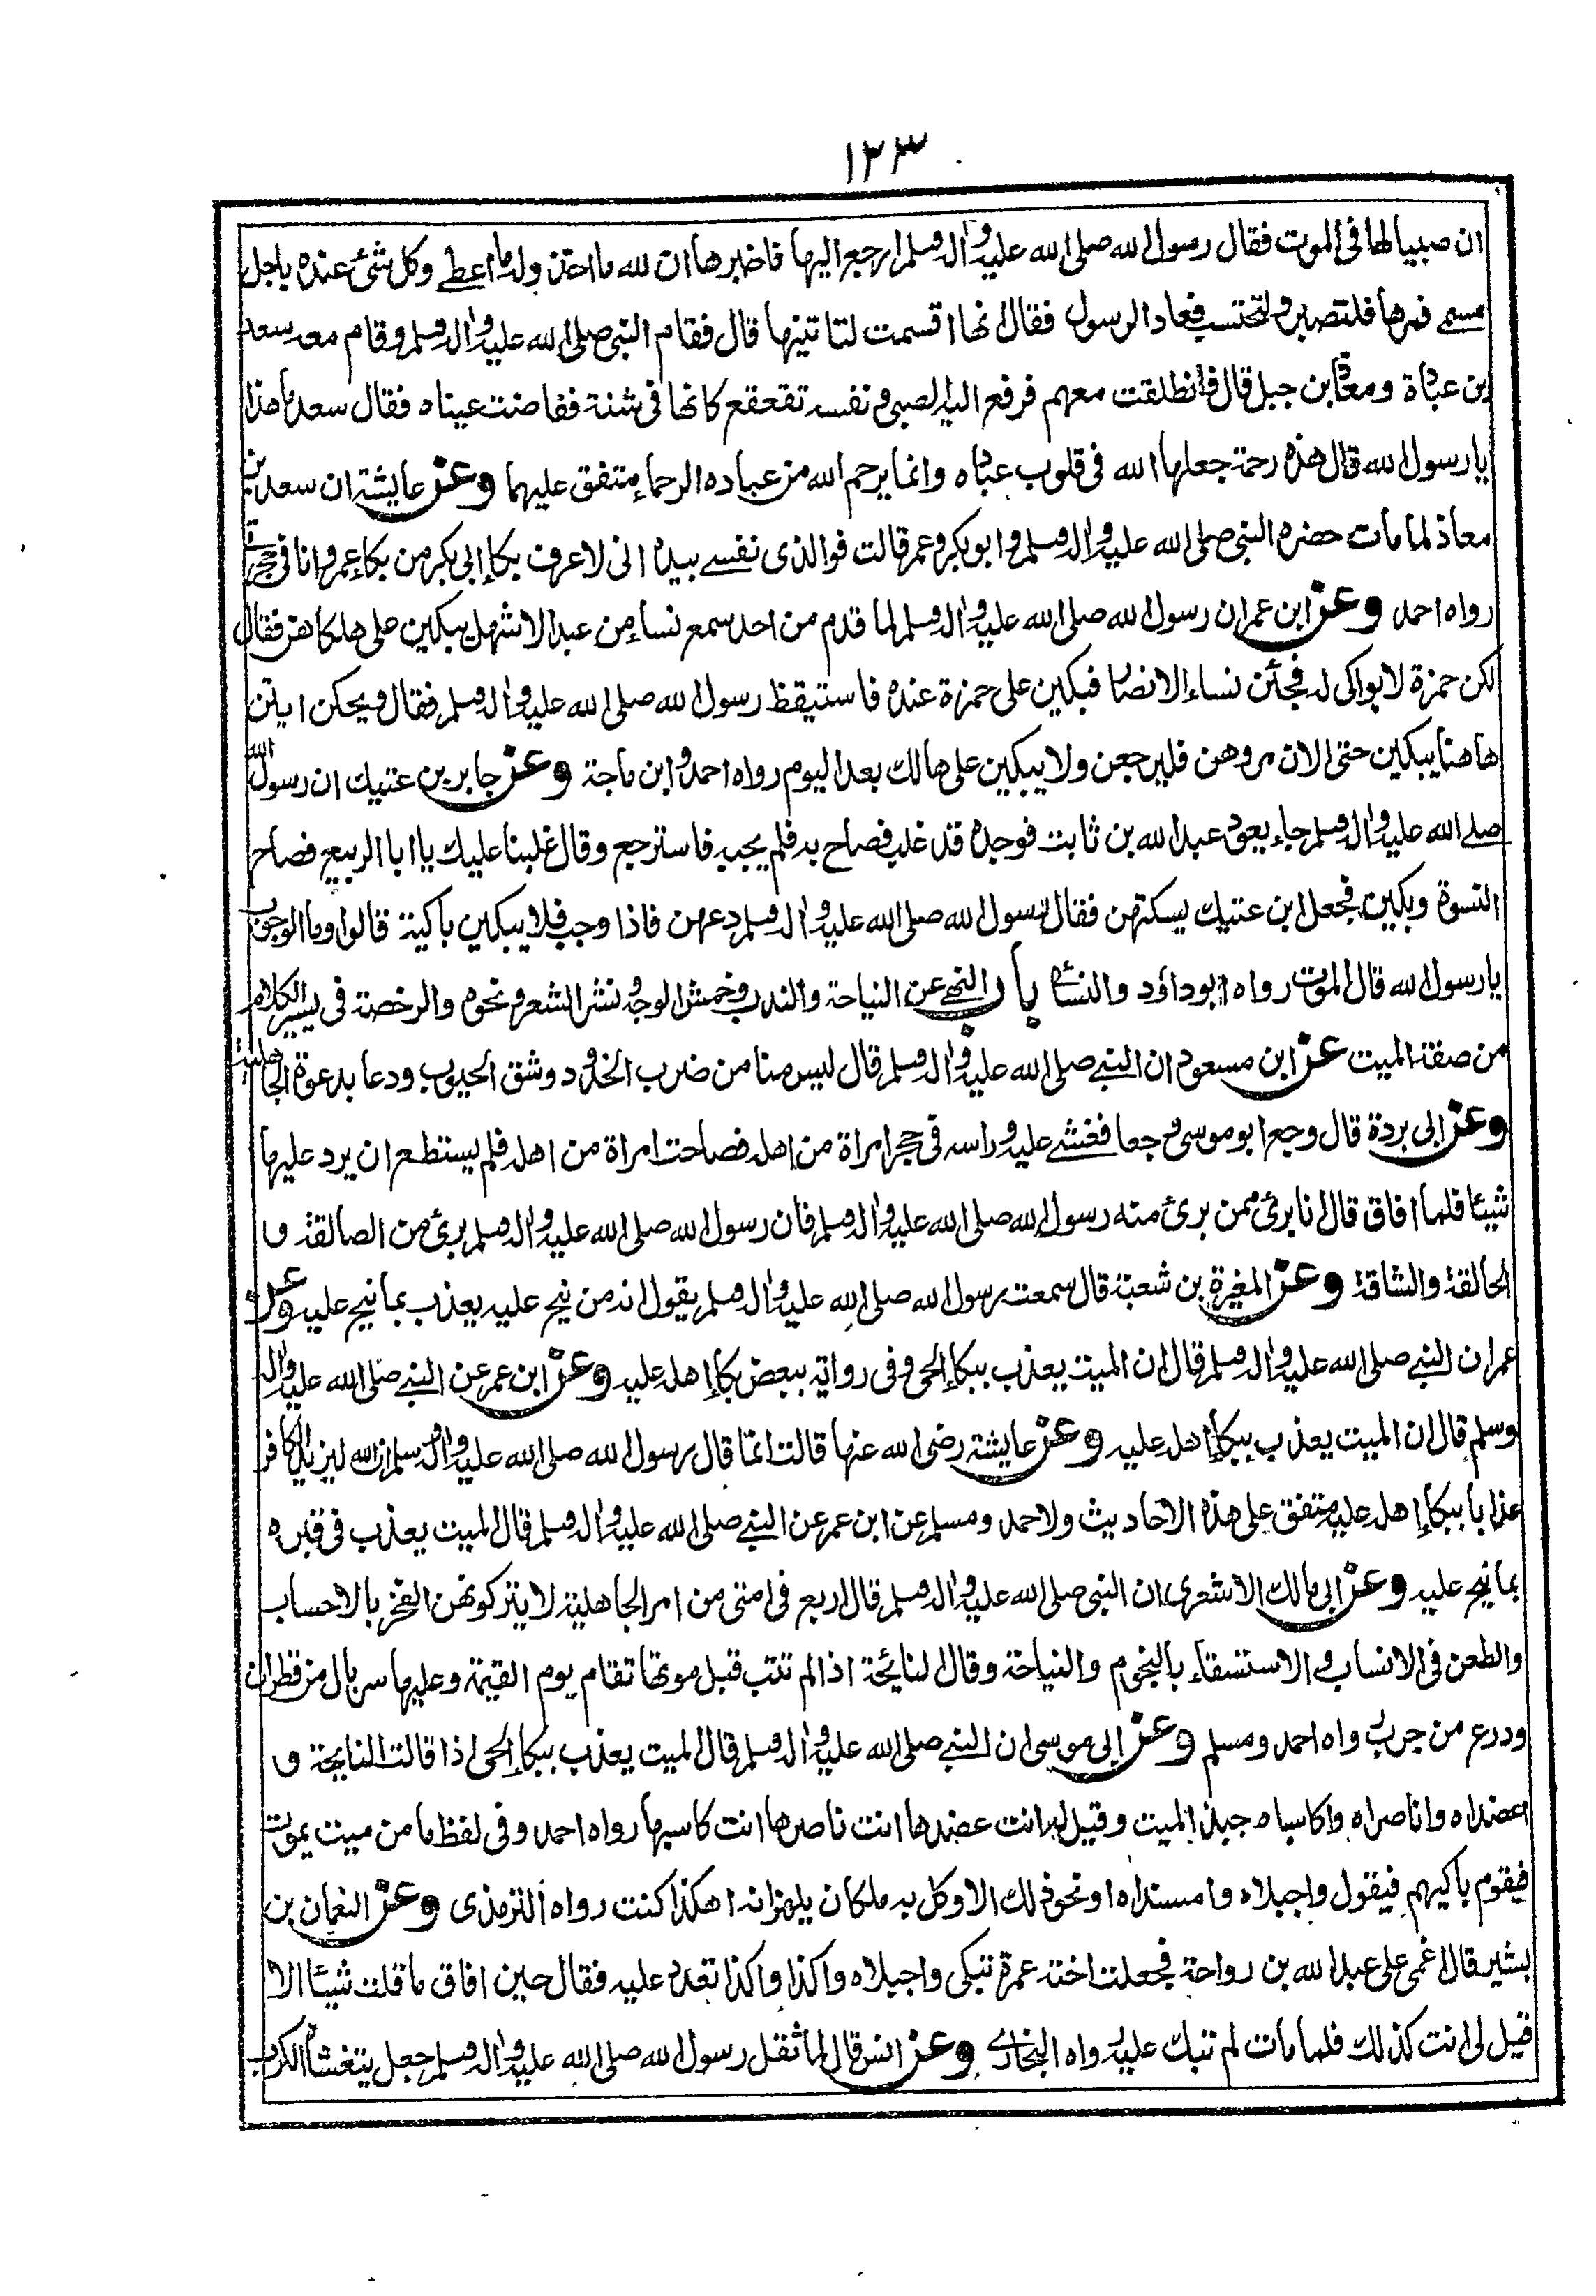 ١٢٣
ان صبيا لها فى الموت فقال رسول الله صلى الله عليه وآله وسلم ارجع اليها فاخبرها ان لله ما اخذ وله ما اعطے وكل شئ عنده باجل
مسمے فمرها فلتصبر ولتحتسب فعاد الرسول فقال انها اقسمت لتاتينها قال فقام النبى صلى الله عليه وآله وسلم وقام معه سعد
بن عبادة ومعاذ بن جبل قال فانطلقت معهم فرفع اليه الصبى ونفسه تقعقع كانها فى شنة ففاضت عيناه فقال سعد ما هذا
يا رسول الله قال هذه رحمة جعلها الله فى قلوب عباده وانما يرحم الله من عباده الرحماء متفق عليهما وعن عايشة ان سعد بن
معاذ لما مات حضره النبى صلى الله عليه وآله وسلم وابو بكر وعمر قالت فوالذى نفسے بيده انى لاعرف بكاء ابى بكر من بكاء عمر وانا فى حجرتى
رواه احمد وعن ابن عمر ان رسول الله صلى الله عليه وآله وسلم لما قدم من احد سمع نساء من عبد الاشهل يبكين على هلكاهن فقال
لكن حمزة لا بواكى له فجئن نساء الانصار فبكين على حمزة عنده فاستيقظ رسول الله صلى الله عليه وآله وسلم فقال ويحكن ايتن
هاهنا يبكين حتى الان مروهن فليرجعن ولا يبكين على هالك بعد اليوم رواه احمد وابن ماجة وعن جابر بن عتيك ان رسول الله
صلے الله عليه وآله وسلم جاء يعود عبد الله بن ثابت فوجده قد غلب فصاح به فلم يجبه فاسترجع وقال غلبنا عليك يا ابا الربيع فصاح
النسوة وبكين فجعل ابن عتيك يسكتهن فقال رسول الله صلى الله عليه وآله وسلم دعهن فاذا وجب فلا يبكين باكية قالوا وما الوجوب
يا رسول الله قال الموت رواه ابو داؤد والنسائى باب النهے عن النياحة والندب وخمش الوجوه ونشر الشعر ونحوه والرخصة فى يسير الكلام
من صفة الميت عن ابن مسعود ان النبے صلى الله عليه وآله وسلم قال ليس منا من ضرب الخدود وشق الجيوب ودعا بدعوة الجاهلية
وعن ابى بردة قال وجع ابو موسى وجعا فغشے عليه وراسه فى حجر امراة من اهله فصاحت امراة من اهله فلم يستطع ان يرد عليها
شيئا فلما افاق قال انا برئ ممن برئ منه رسول الله صلى الله عليه وآله وسلم فان رسول الله صلى الله عليه وآله وسلم برئ من الصالقة و
الحالقة والشاقة وعن المغيرة بن شعبة قال سمعت رسول الله صلى الله عليه وآله وسلم يقول انه من نيح عليه يعذب بما نيح عليه وعن
عمر ان النبے صلى الله عليه وآله وسلم قال ان الميت يعذب ببكاء الحى وفى رواية ببعض بكاء اهله عليه وعن ابن عمر عن النبے صلى الله عليه وآله
وسلم قال ان الميت يعذب ببكاء اهله عليه وعن عايشة رضى الله عنها قالت انما قال رسول الله صلى الله عليه وآله وسلم ان الله ليزيد الكافر
عذابا ببكاء اهله عليه متفق على هذه الاحاديث ولاحمد ومسلم عن ابن عمر عن النبے صلى الله عليه وآله وسلم قال الميت يعذب فى قبره
بما نيح عليه وعن ابى مالك الاشعرى ان النبى صلى الله عليه وآله وسلم قال اربع فى امتى من امر الجاهلية لا يتركونهن الفخر بالاحساب
والطعن فى الانساب والاستسقاء بالنجوم والنياحة وقال النايحة اذا لم تتب قبل موتها تقام يوم القيمة وعليها سربال من قطران
ودرع من جرب رواه احمد ومسلم وعن ابى موسى ان النبے صلى الله عليه وآله وسلم قال الميت يعذب ببكاء الحى اذا قالت النايحة و
اعضداه واناصراه واكاسياه جبذ الميت وقيل له انت عضدها انت ناصرها انت كاسيها رواه احمد وفى لفظ ما من ميت يموت
فيقوم باكيهم فيقول واجبلاه وامسنداه او نحو ذلك الا وكل به ملكان يلهزانه اهكذا كنت رواه الترمذى وعن النعمان بن
بشير قال اغمى على عبد الله بن رواحة فجعلت اخته عمرة تبكى واجبلاه واكذا واكذا تعدد عليه فقال حين افاق ما قلت شيئا الا
قيل لى انت كذلك فلما مات لم تبك عليه رواه البخارے وعن انس قال لما ثقل رسول الله صلى الله عليه وآله وسلم جعل يتغشاه الكرب